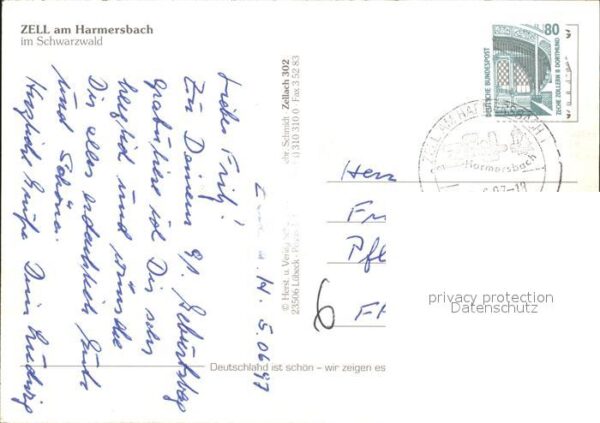 ZELL am Harmersbach
im Schwarzwald
Z. a. H. 5.06.97
Lieber Fritz!
Zu Deinem 91. Geburtstag
gratuliere ich Dir sehr
herzlich und wünsche
Dir alles erdenklich Gute
und Schöne.
Herzliche Grüße Dein Ludwig
© Herst. u. Verlag Schmidt · Zellach 302
23506 Lübeck · 310 310 0 Fax 3 52 83
80
DEUTSCHE BUNDESPOST
ZECHE ZOLLERN II DORTMUND
ZELL AM HARMERSBACH
Harmersbach
Herr
Fr
Pfl
6
privacy protection
Datenschutz
Deutschland ist schön – wir zeigen es